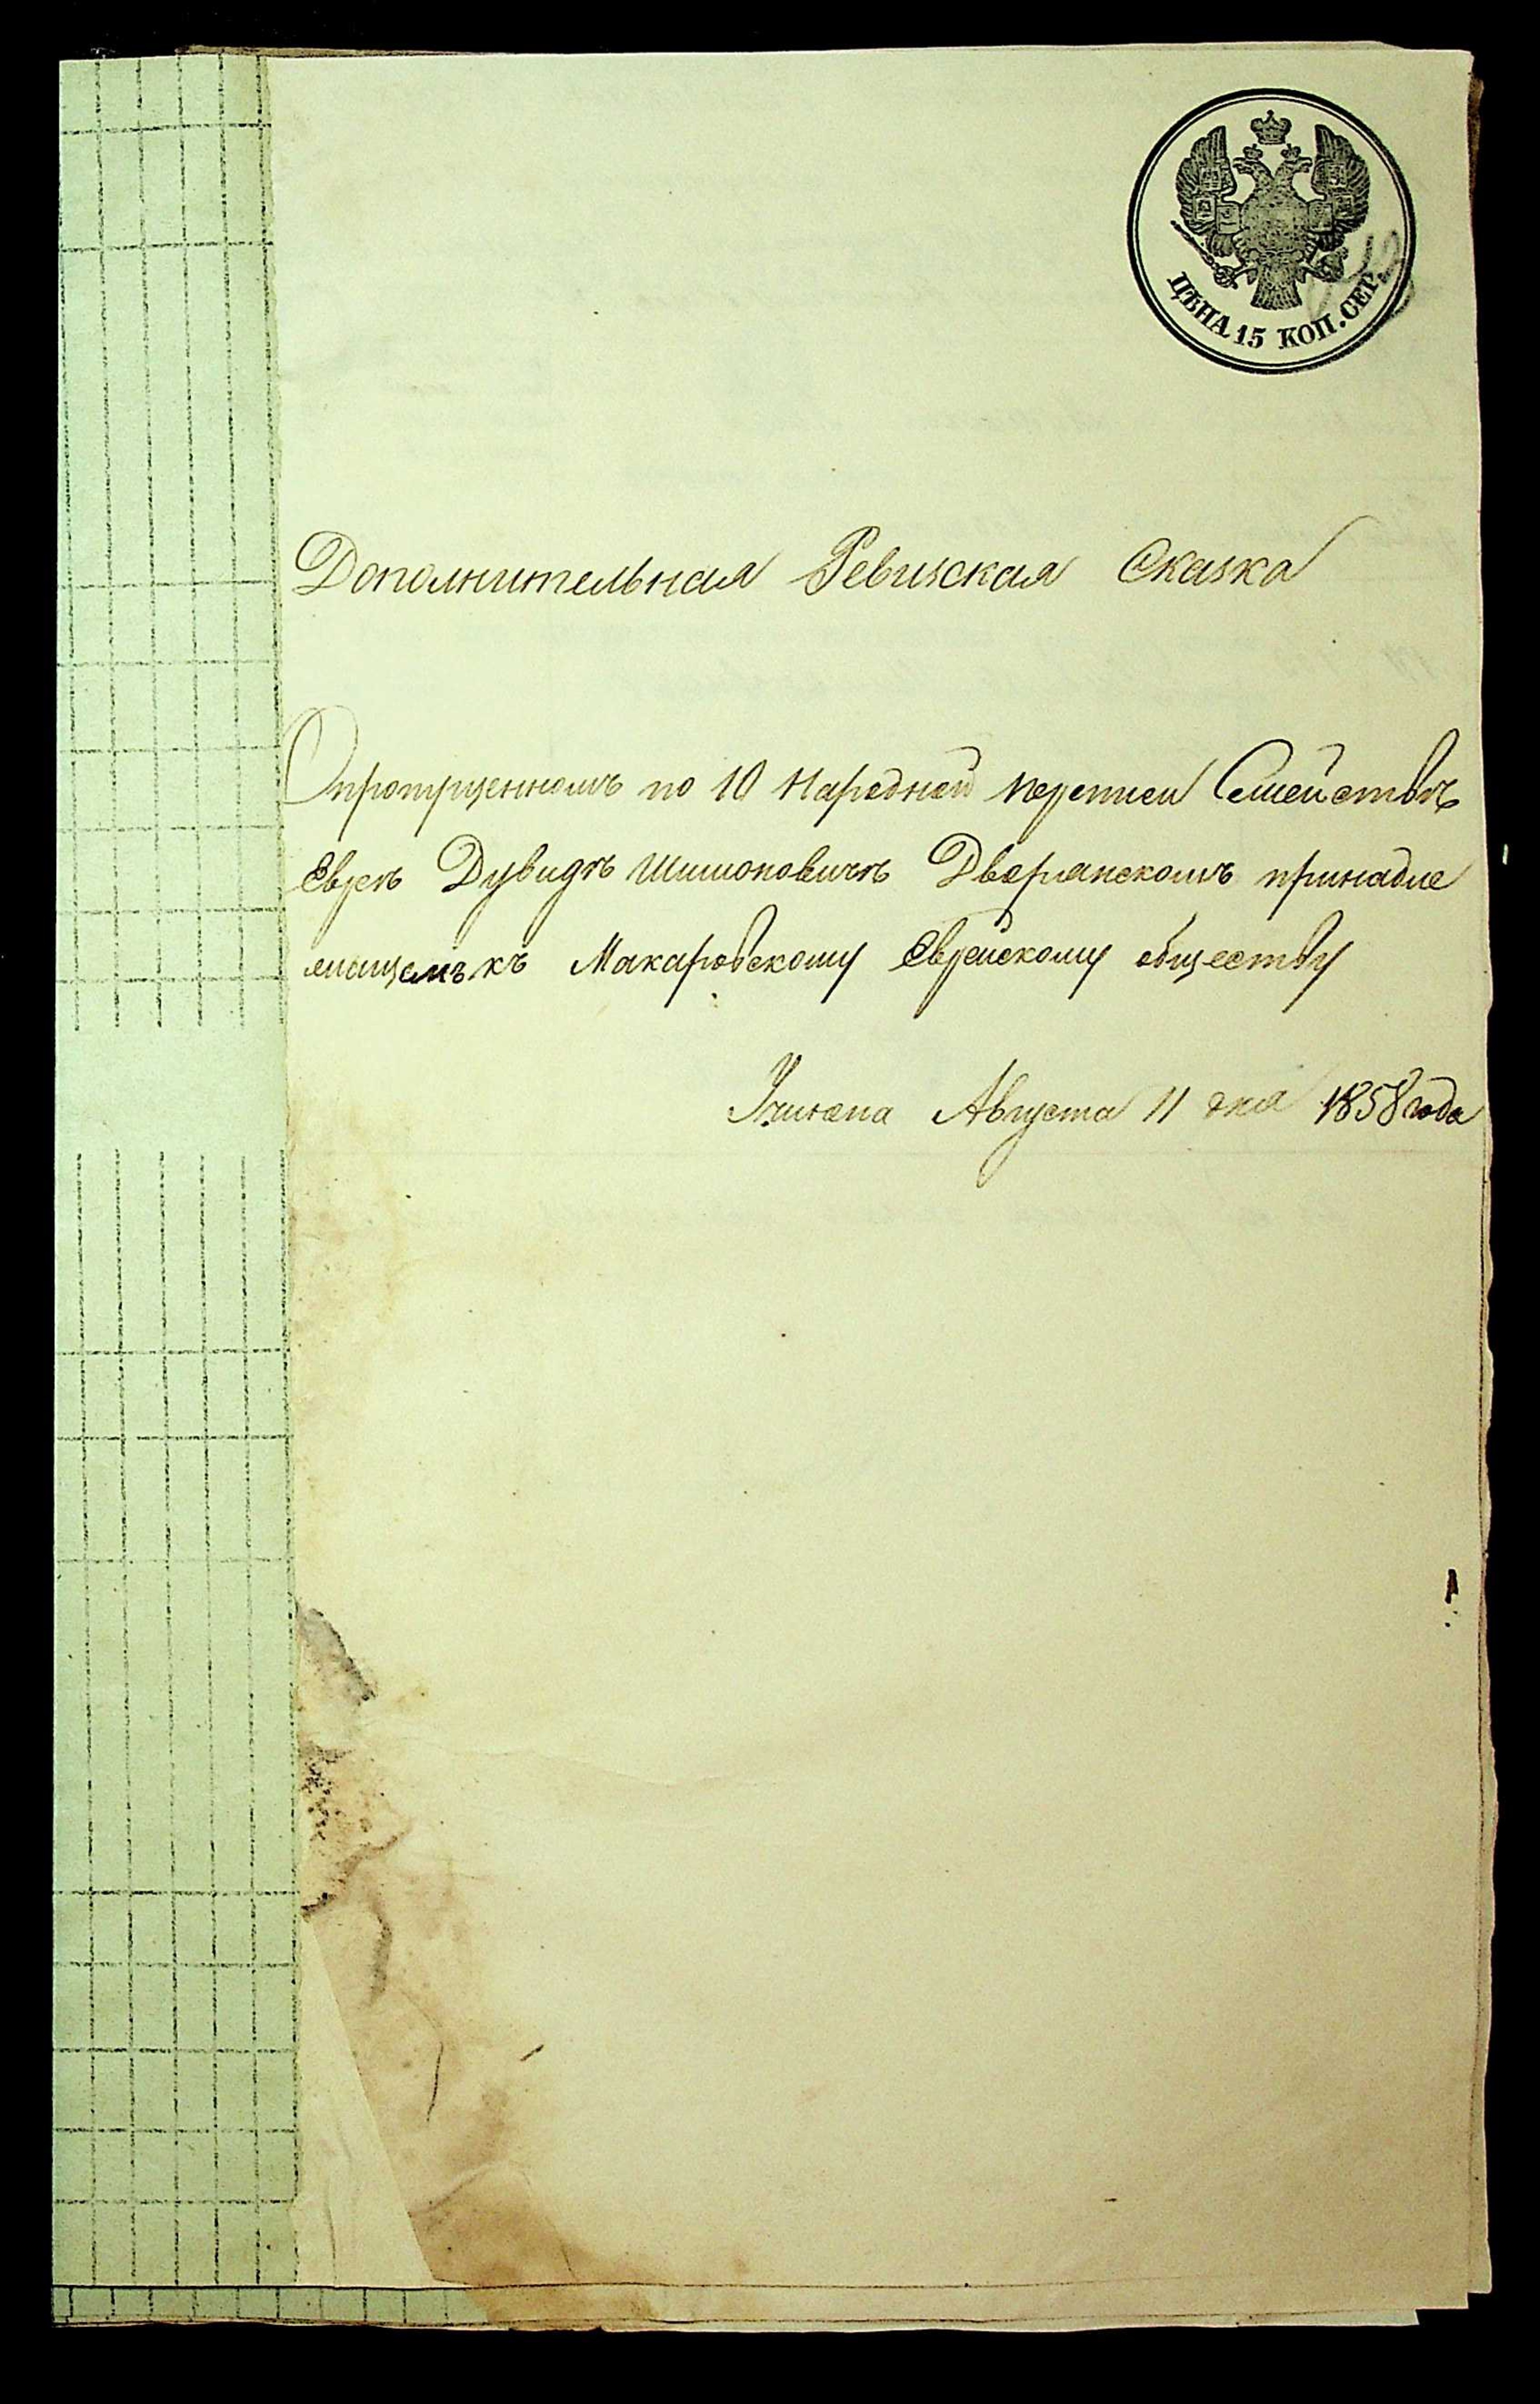 ЦѢНА 15 КОП. СЕР.
Дополнительная Ревизская Сказка
О пропущенномъ по 10 Народной переписи Семействѣ
Еврея Дувидѣ Шимоновичѣ Дворянскомъ принадле
жащемъ къ Макаровскому Еврейскому обществу
Учинена Августа 11 дня 1858 года